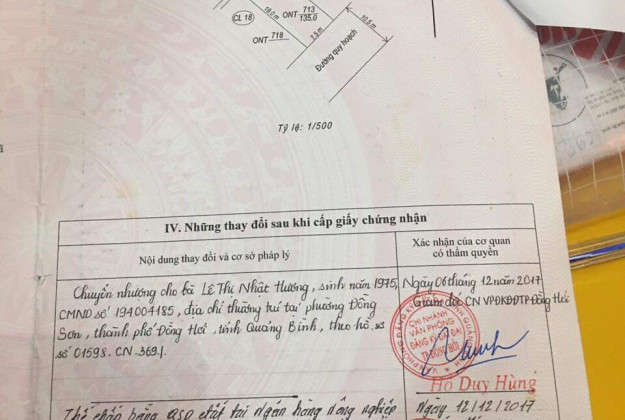 18.0m
CL 18
ONT 713
135.0
10.5m
7.5m
ONT 718
Đường quy hoạch
Tỷ lệ: 1/500
IV. Những thay đổi sau khi cấp giấy chứng nhận
Nội dung thay đổi và cơ sở pháp lý
Xác nhận của cơ quan
có thẩm quyền
Chuyển nhượng cho bà Lê Thị Nhật Hương, sinh năm 1975,
CMND số 194004185, địa chỉ thường trú tại phường Đồng
Sơn, thành phố Đồng Hới, tỉnh Quảng Bình, theo hồ sơ
số 01598.CN.369.
Ngày 06 tháng 12 năm 2017
Giám đốc CN VPĐKĐĐTP Đồng Hới
CHI NHÁNH
VĂN PHÒNG
ĐĂNG KÝ ĐẤT ĐAI
TP ĐỒNG HỚI
Hồ Duy Hùng
Thế chấp bằng QSD đất tại Ngân hàng nông nghiệp
Ngày 12/12/2017